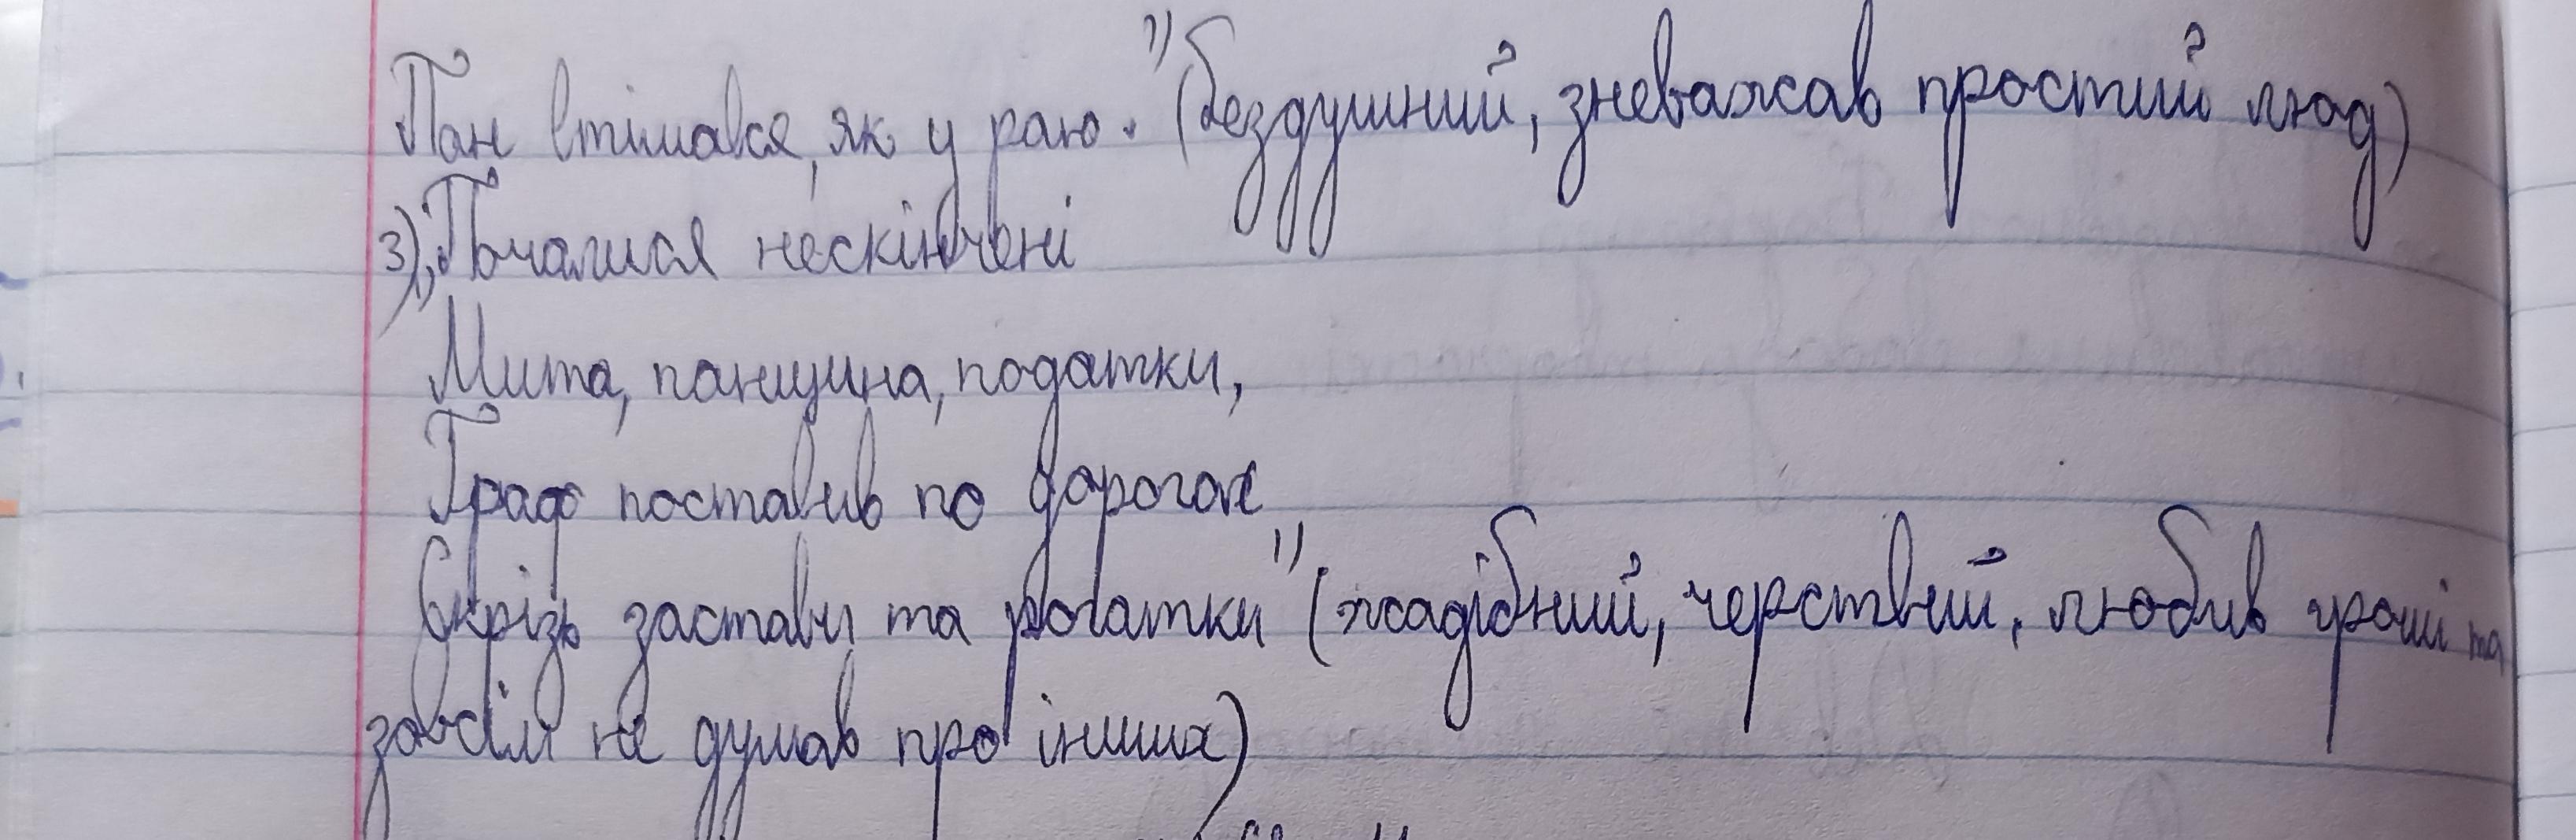 Пан втішався, як у раю." (бездушний, зневажав простий люд)
3) "Почалися нескінчені
Мита, панщина, податки,
Граф поставив по дорогах
Скрізь застави та рогатки" (жадібний, черствий, любив гроші та
зовсім не думав про інших)